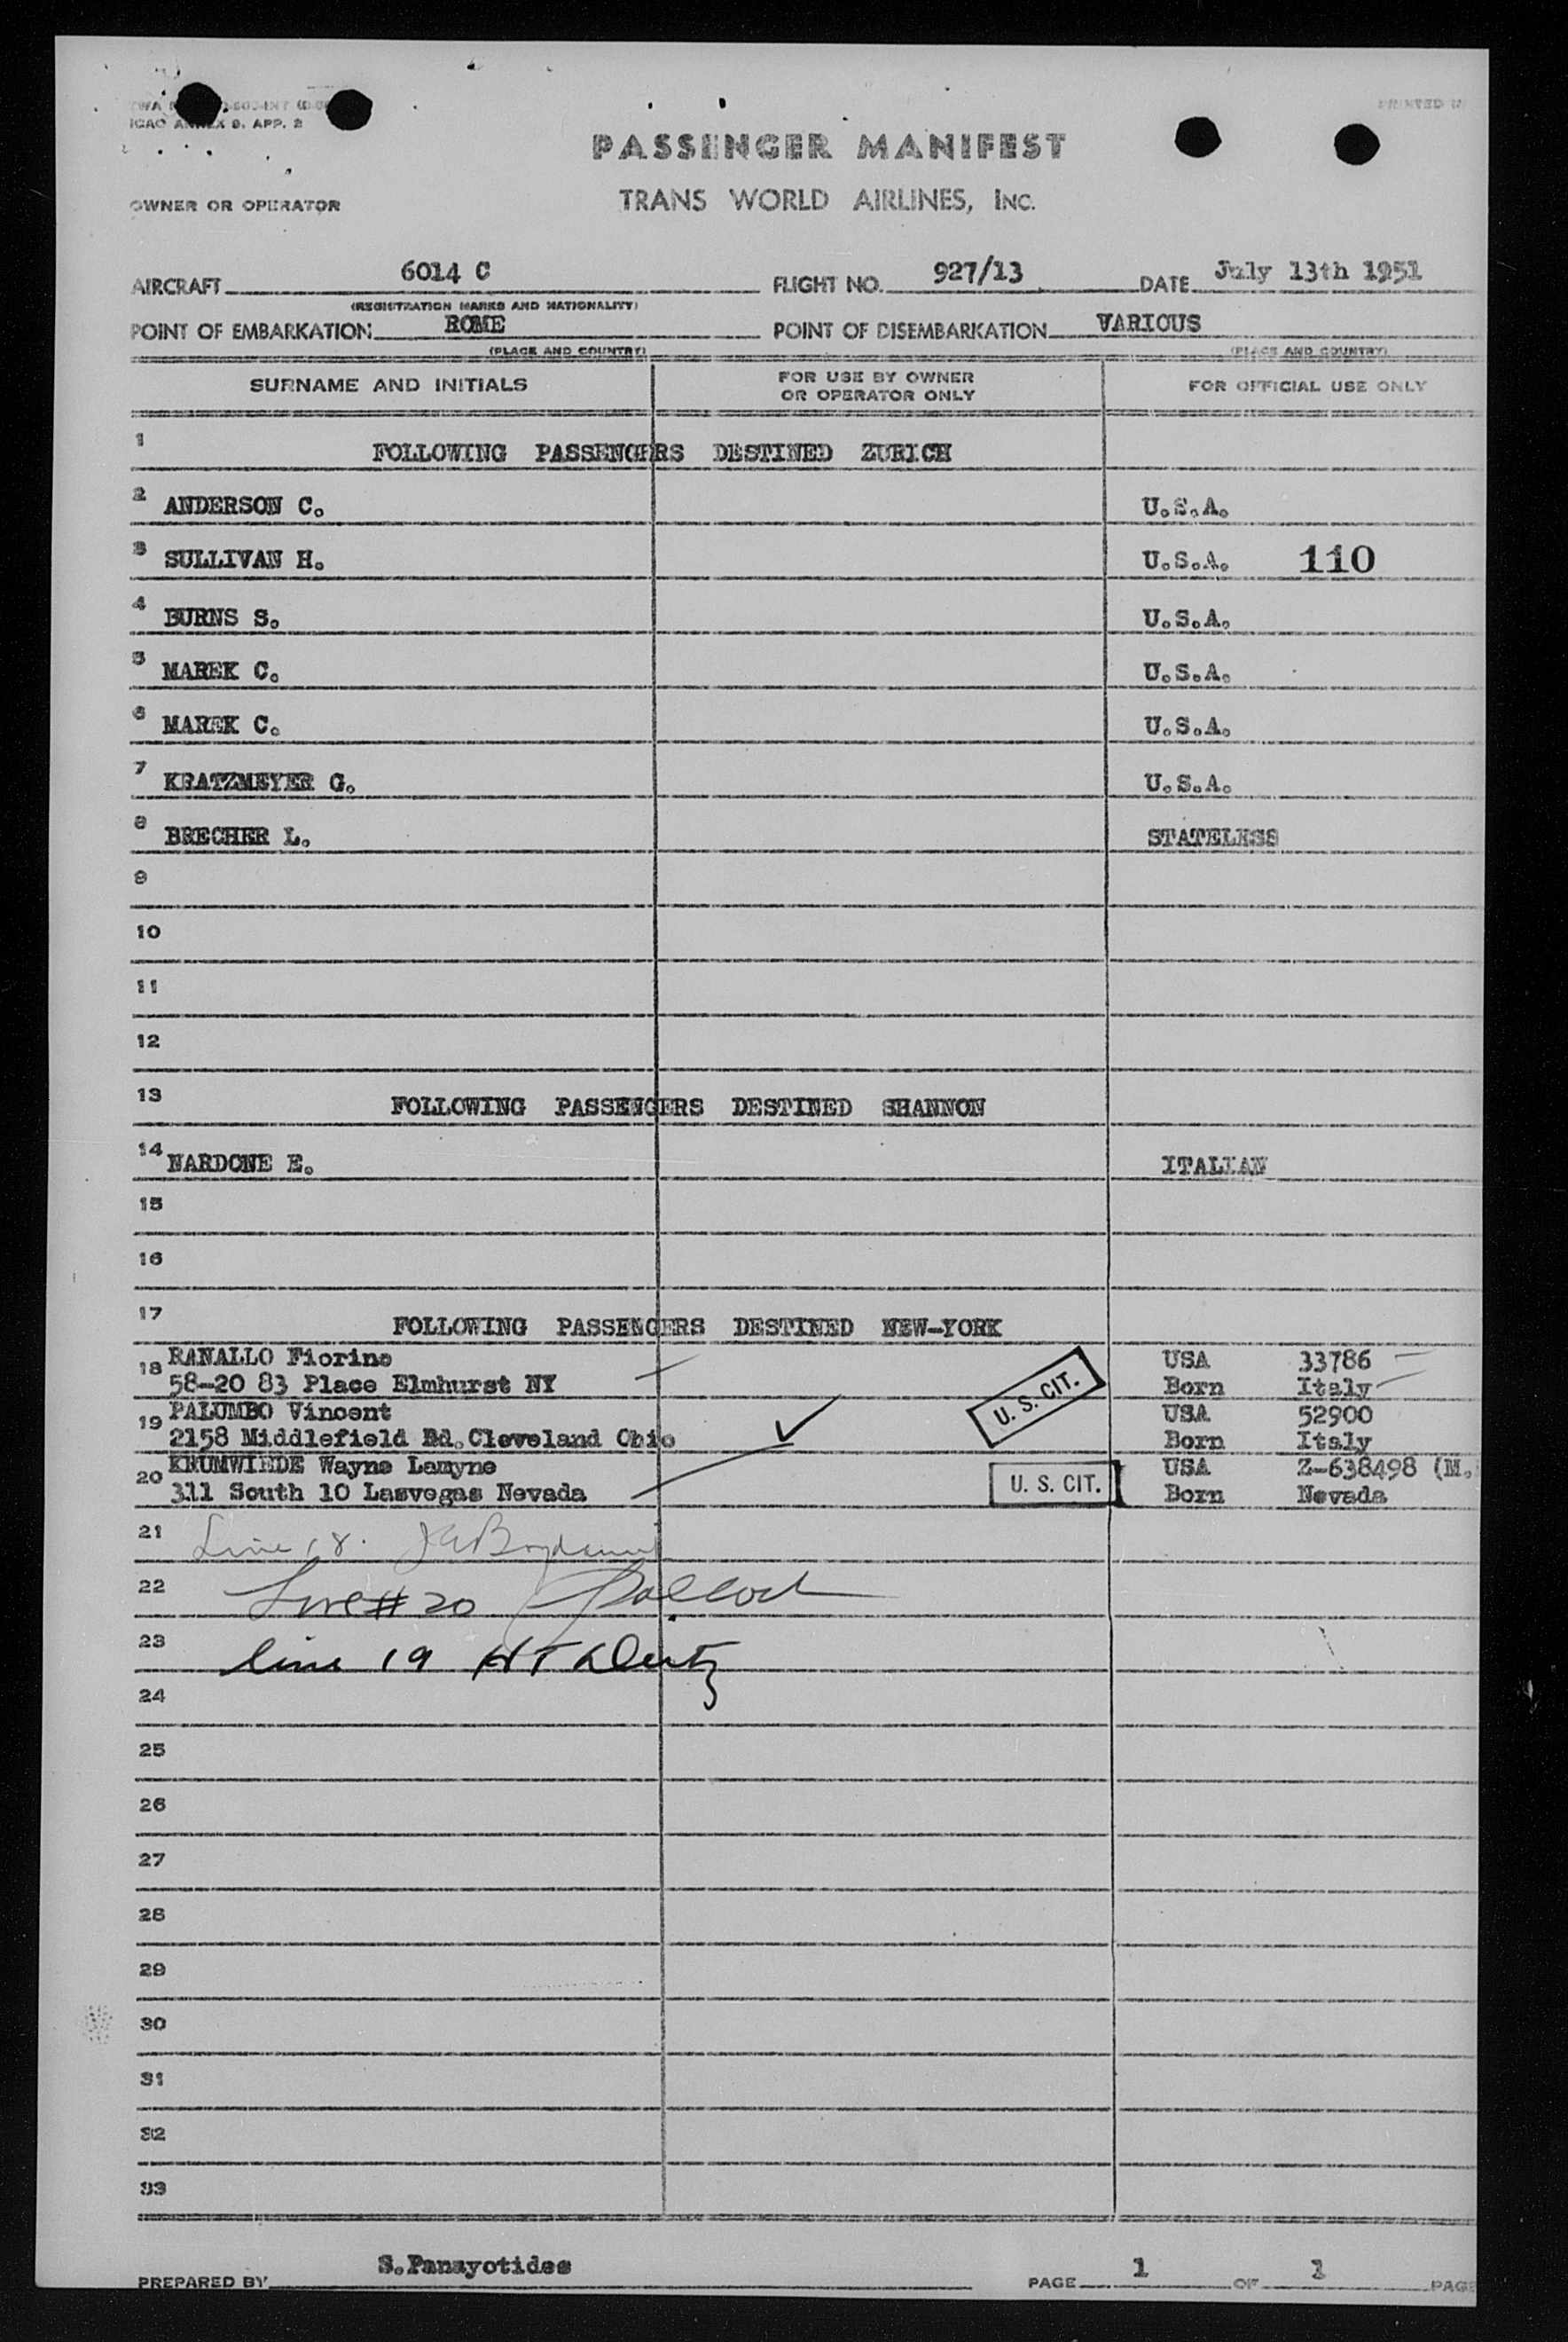 ICAO ANNEX 9. APP. 2
PRINTED IN
PASSENGER MANIFEST
OWNER OR OPERATOR
TRANS WORLD AIRLINES, INC.
AIRCRAFT 6014 C FLIGHT NO. 927/13 DATE July 13th 1951
(REGISTRATION MARKS AND NATIONALITY)
POINT OF EMBARKATION ROME POINT OF DISEMBARKATION VARIOUS
(PLACE AND COUNTRY) (PLACE AND COUNTRY)
SURNAME AND INITIALS FOR USE BY OWNER OR OPERATOR ONLY FOR OFFICIAL USE ONLY
1 FOLLOWING PASSENGERS DESTINED ZURICH
2 ANDERSON C. U.S.A.
3 SULLIVAN H. U.S.A. 110
4 BURNS S. U.S.A.
5 MAREK C. U.S.A.
6 MAREK C. U.S.A.
7 KRATZMEYER G. U.S.A.
8 BRECHER L. STATELESS
9
10
11
12
13 FOLLOWING PASSENGERS DESTINED SHANNON
14 NARDONE E. ITALIAN
15
16
17 FOLLOWING PASSENGERS DESTINED NEW-YORK
18 RANALLO Fiorino USA 33786
58-20 83 Place Elmhurst NY U. S. CIT. Born Italy
19 PALUMBO Vincent USA 52900
2158 Middlefield Rd. Cleveland Ohio Born Italy
20 KRUMWIEDE Wayne Lamyne USA Z-638498 (M.
311 South 10 Lasvegas Nevada U. S. CIT. Born Nevada
21 Line 18.
22 Line # 20
23 line 19
24
25
26
27
28
29
30
31
32
33
PREPARED BY S.Panayotides PAGE 1 OF 1 PAGE